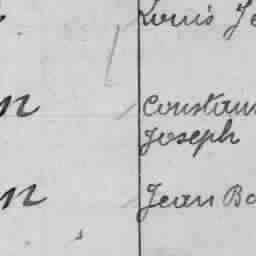 Louis Je
n
Constan
Joseph
n
Jean Ba